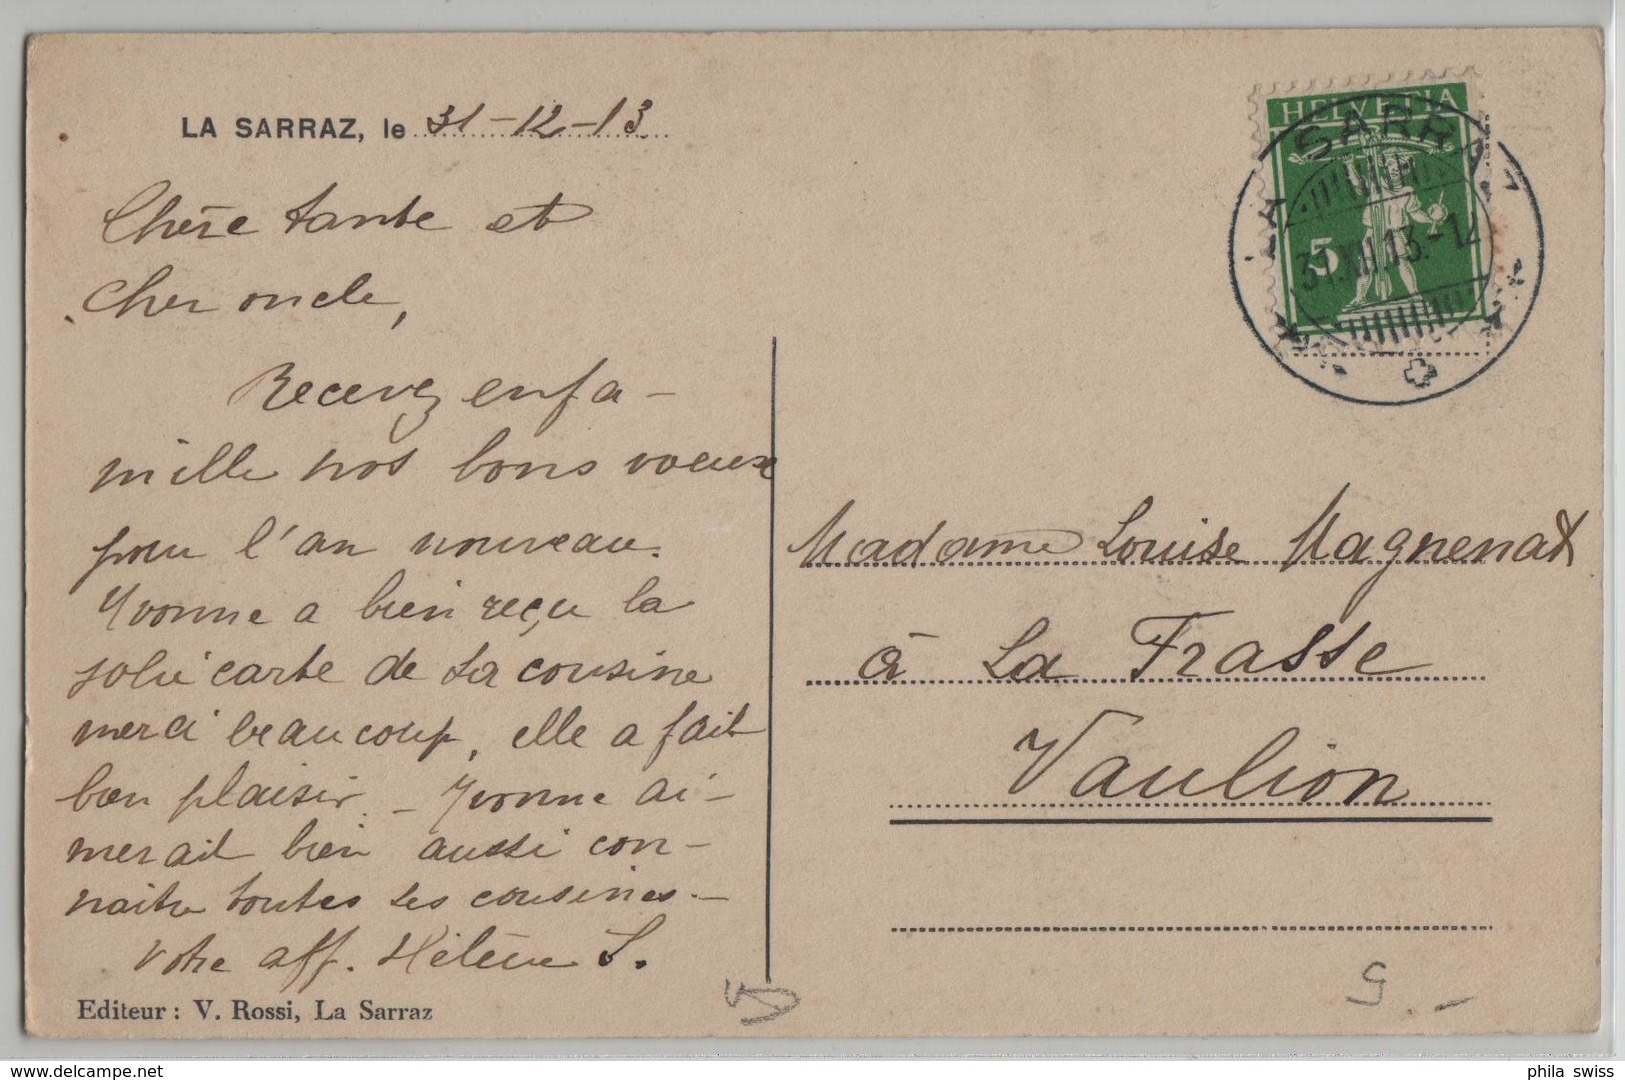 LA SARRAZ, le 31-12-13
Chère tante et
cher oncle,
Recevez enfa-
mille nos bons voeux
pour l'an nouveau.
Yvonne a bien reçu la
jolie carte de sa cousine
merci beaucoup, elle a fait
bon plaisir. - Yvonne ai-
merait bien aussi con-
naitre toutes ses cousines.-
Votre aff. Hélène S.
Editeur : V. Rossi, La Sarraz
HELVETIA
5
LA SARRAZ
31.XII.13.-12
Madame Louise Magnenat
à La Frasse
Vaulion
phila swiss